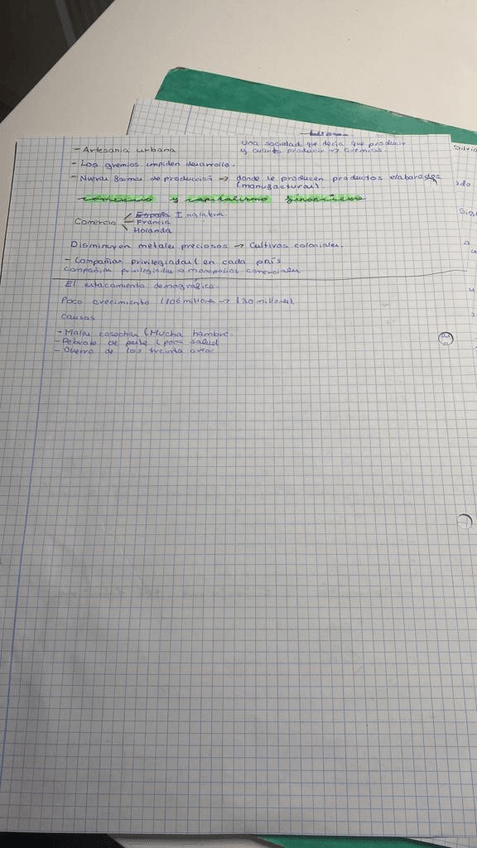 - Artesanía urbana
una sociedad que decía que producir
y cuanto producir → Gremios.
- Los gremios impiden desarrollo.
- Nuevas formas de producción → donde se producen productos elaborados
(manufacturas)
comercio y capitalismo financiero
Comercio España Inglaterra
Francia
Holanda
Disminuyen metales preciosos → Cultivos coloniales.
- Compañias privilegiadas ( en cada país
compañias privilegiadas o monopolios comerciales
El estacamiento demográfico.
Poco crecimiento
causas
- Malas cosechas (Mucha hambre.
- Rebrote de peste ( poca salud
- Guerra de los treinta años